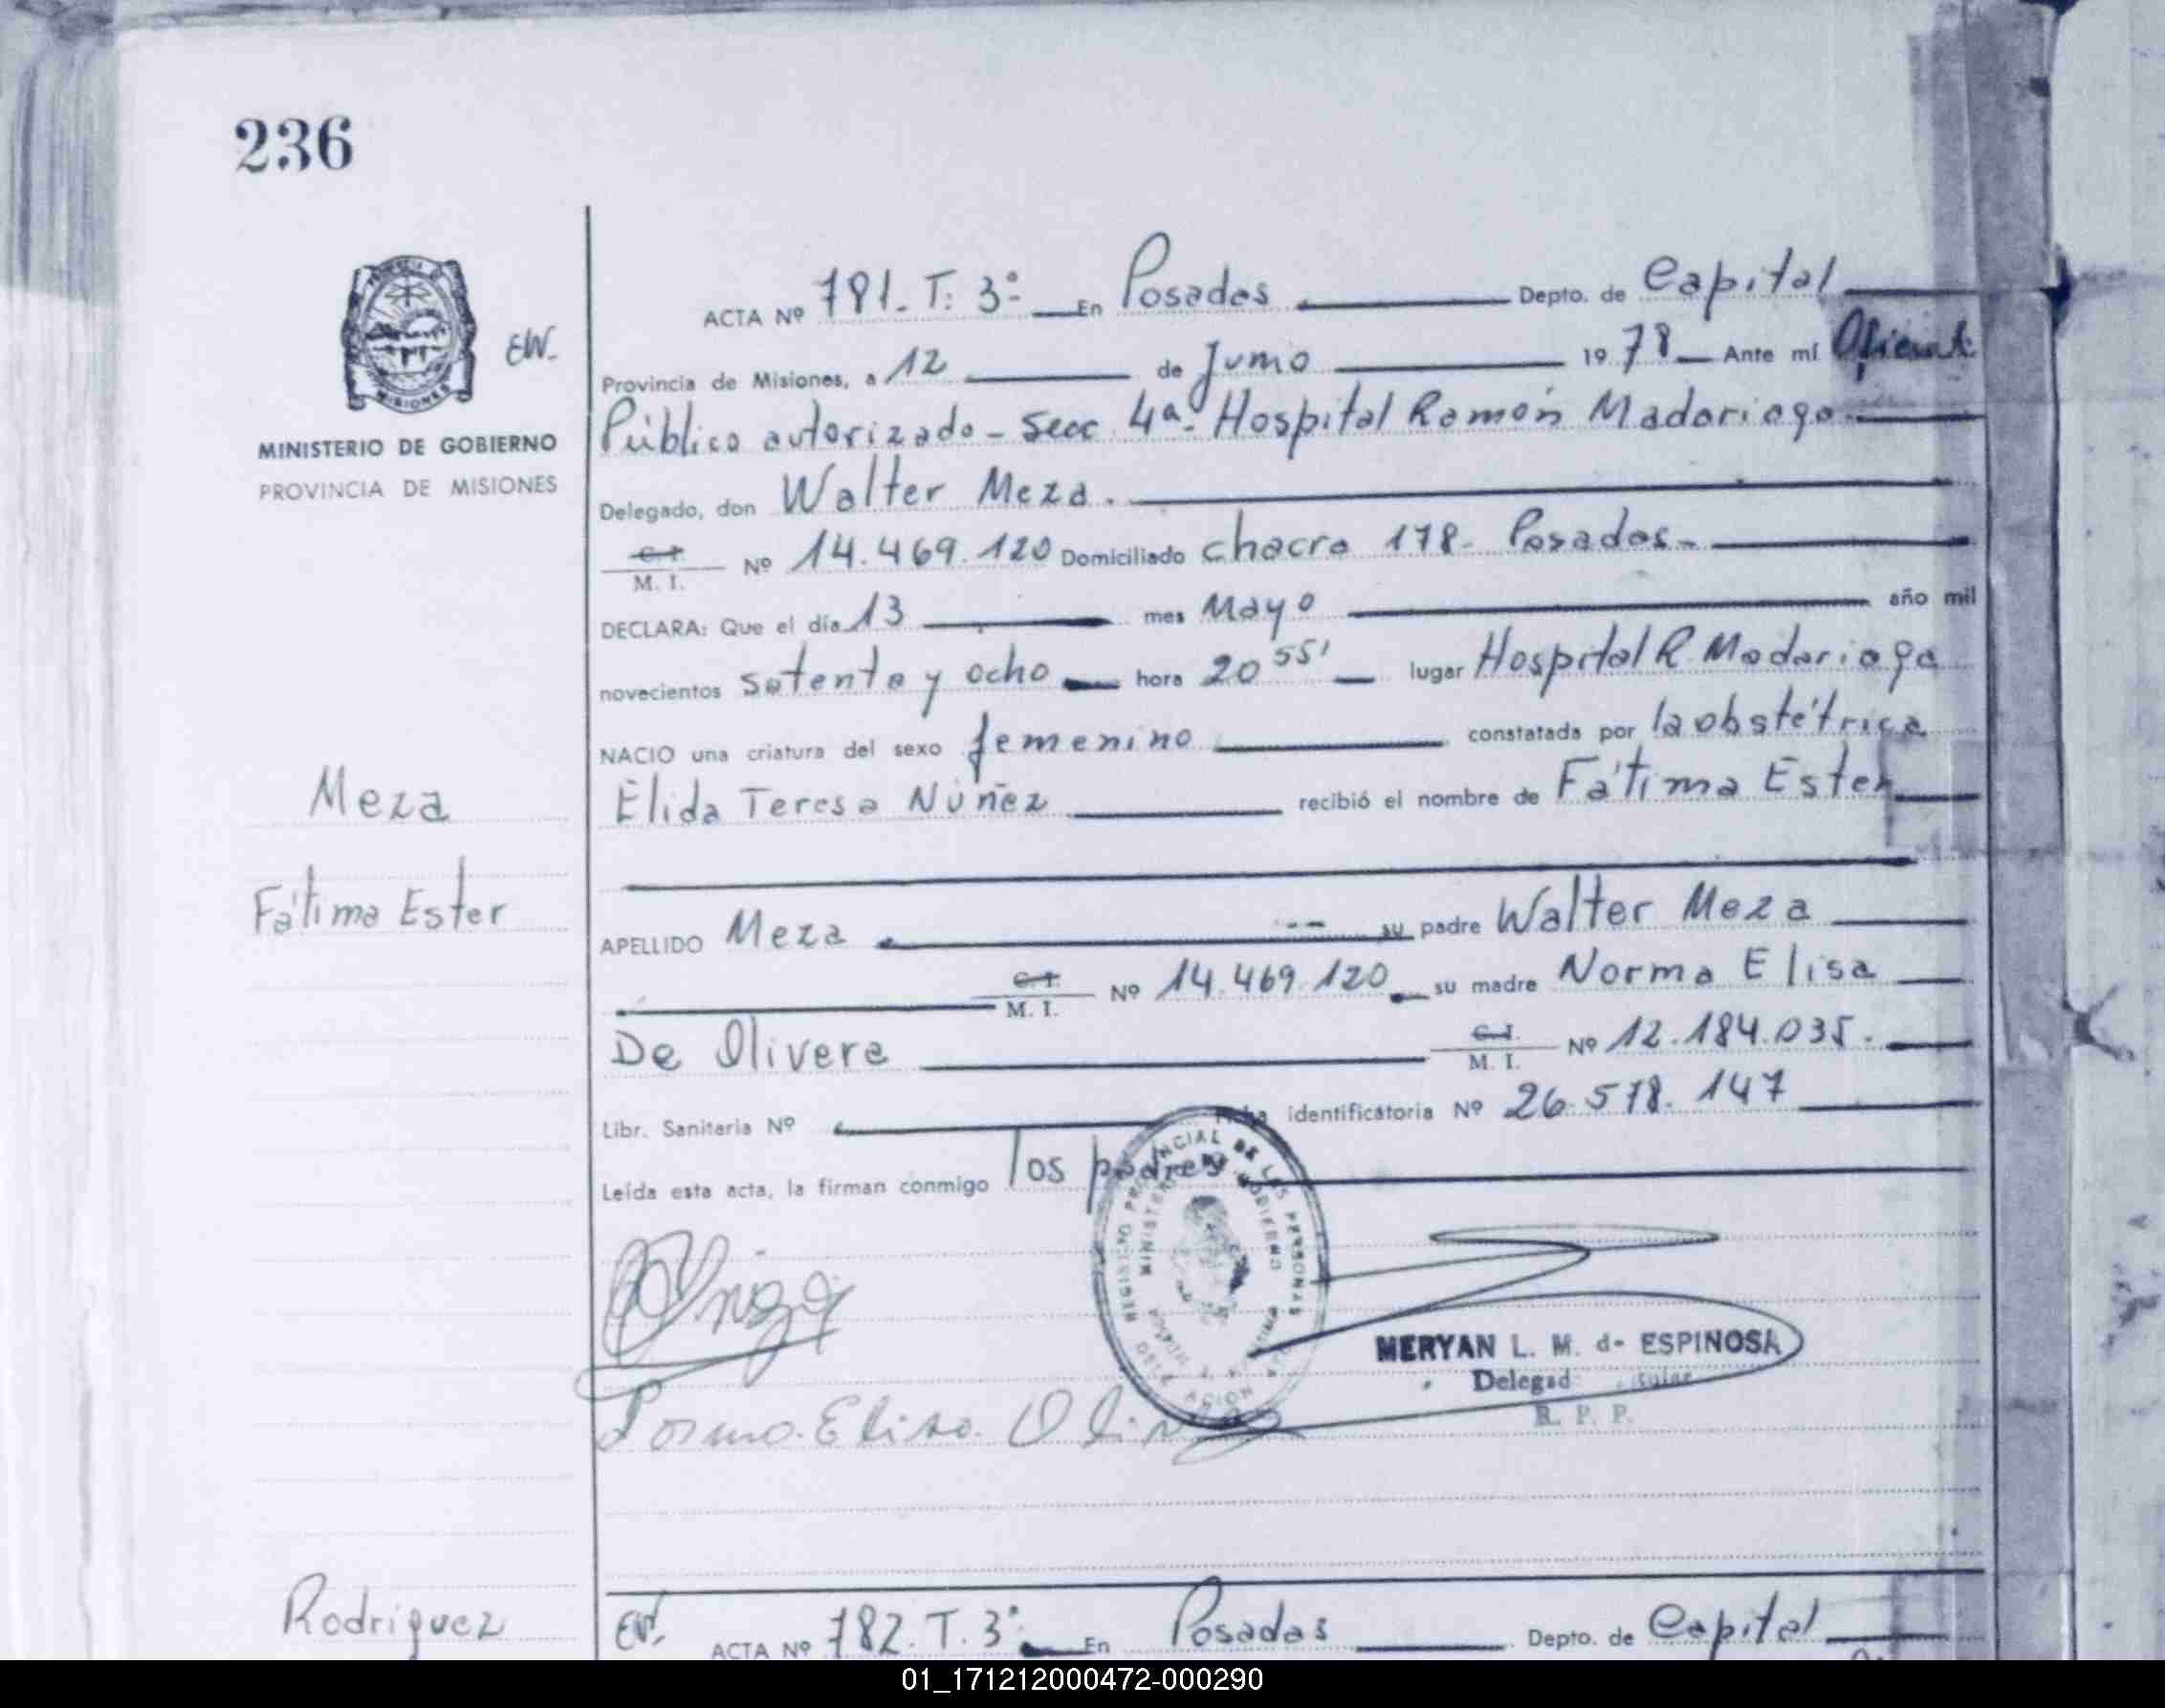 236
EW.
PROVINCIA DE
MISIONES
MINISTERIO DE GOBIERNO
PROVINCIA DE MISIONES
ACTA Nº 781. T: 3º En Posadas Depto. de Capital
Provincia de Misiones, a 12 de Junio 1978 Ante mí Oficial
Público autorizado - Secc 4ª. Hospital Ramón Madariaga.
Delegado, don Walter Meza.
C. I.
M. I. Nº 14.469.120 Domiciliado chacra 178. Posadas.
DECLARA: Que el día 13 mes Mayo año mil
novecientos setenta y ocho hora 20 55' lugar Hospital R. Madariaga
NACIO una criatura del sexo femenino constatada por la obstétrica
Elida Teresa Núñez recibió el nombre de Fátima Ester
Meza
Fátima Ester
APELLIDO Meza su padre Walter Meza
C. I.
M. I. Nº 14.469.120 su madre Norma Elisa
De Olivera C. I.
M. I. Nº 12.184.035.
Libr. Sanitaria Nº identificatoria Nº 26.578.147
Leída esta acta, la firman conmigo los padres
REGISTRO PROVINCIAL DE LAS PERSONAS
MINISTERIO DE GOBIERNO
Norma Elisa
MERYAN L. M. d- ESPINOSA
Delegad
R. P. P.
Rodriguez
EW. ACTA Nº 782. T. 3º. En Posadas Depto. de Capital
01_171212000472-000290